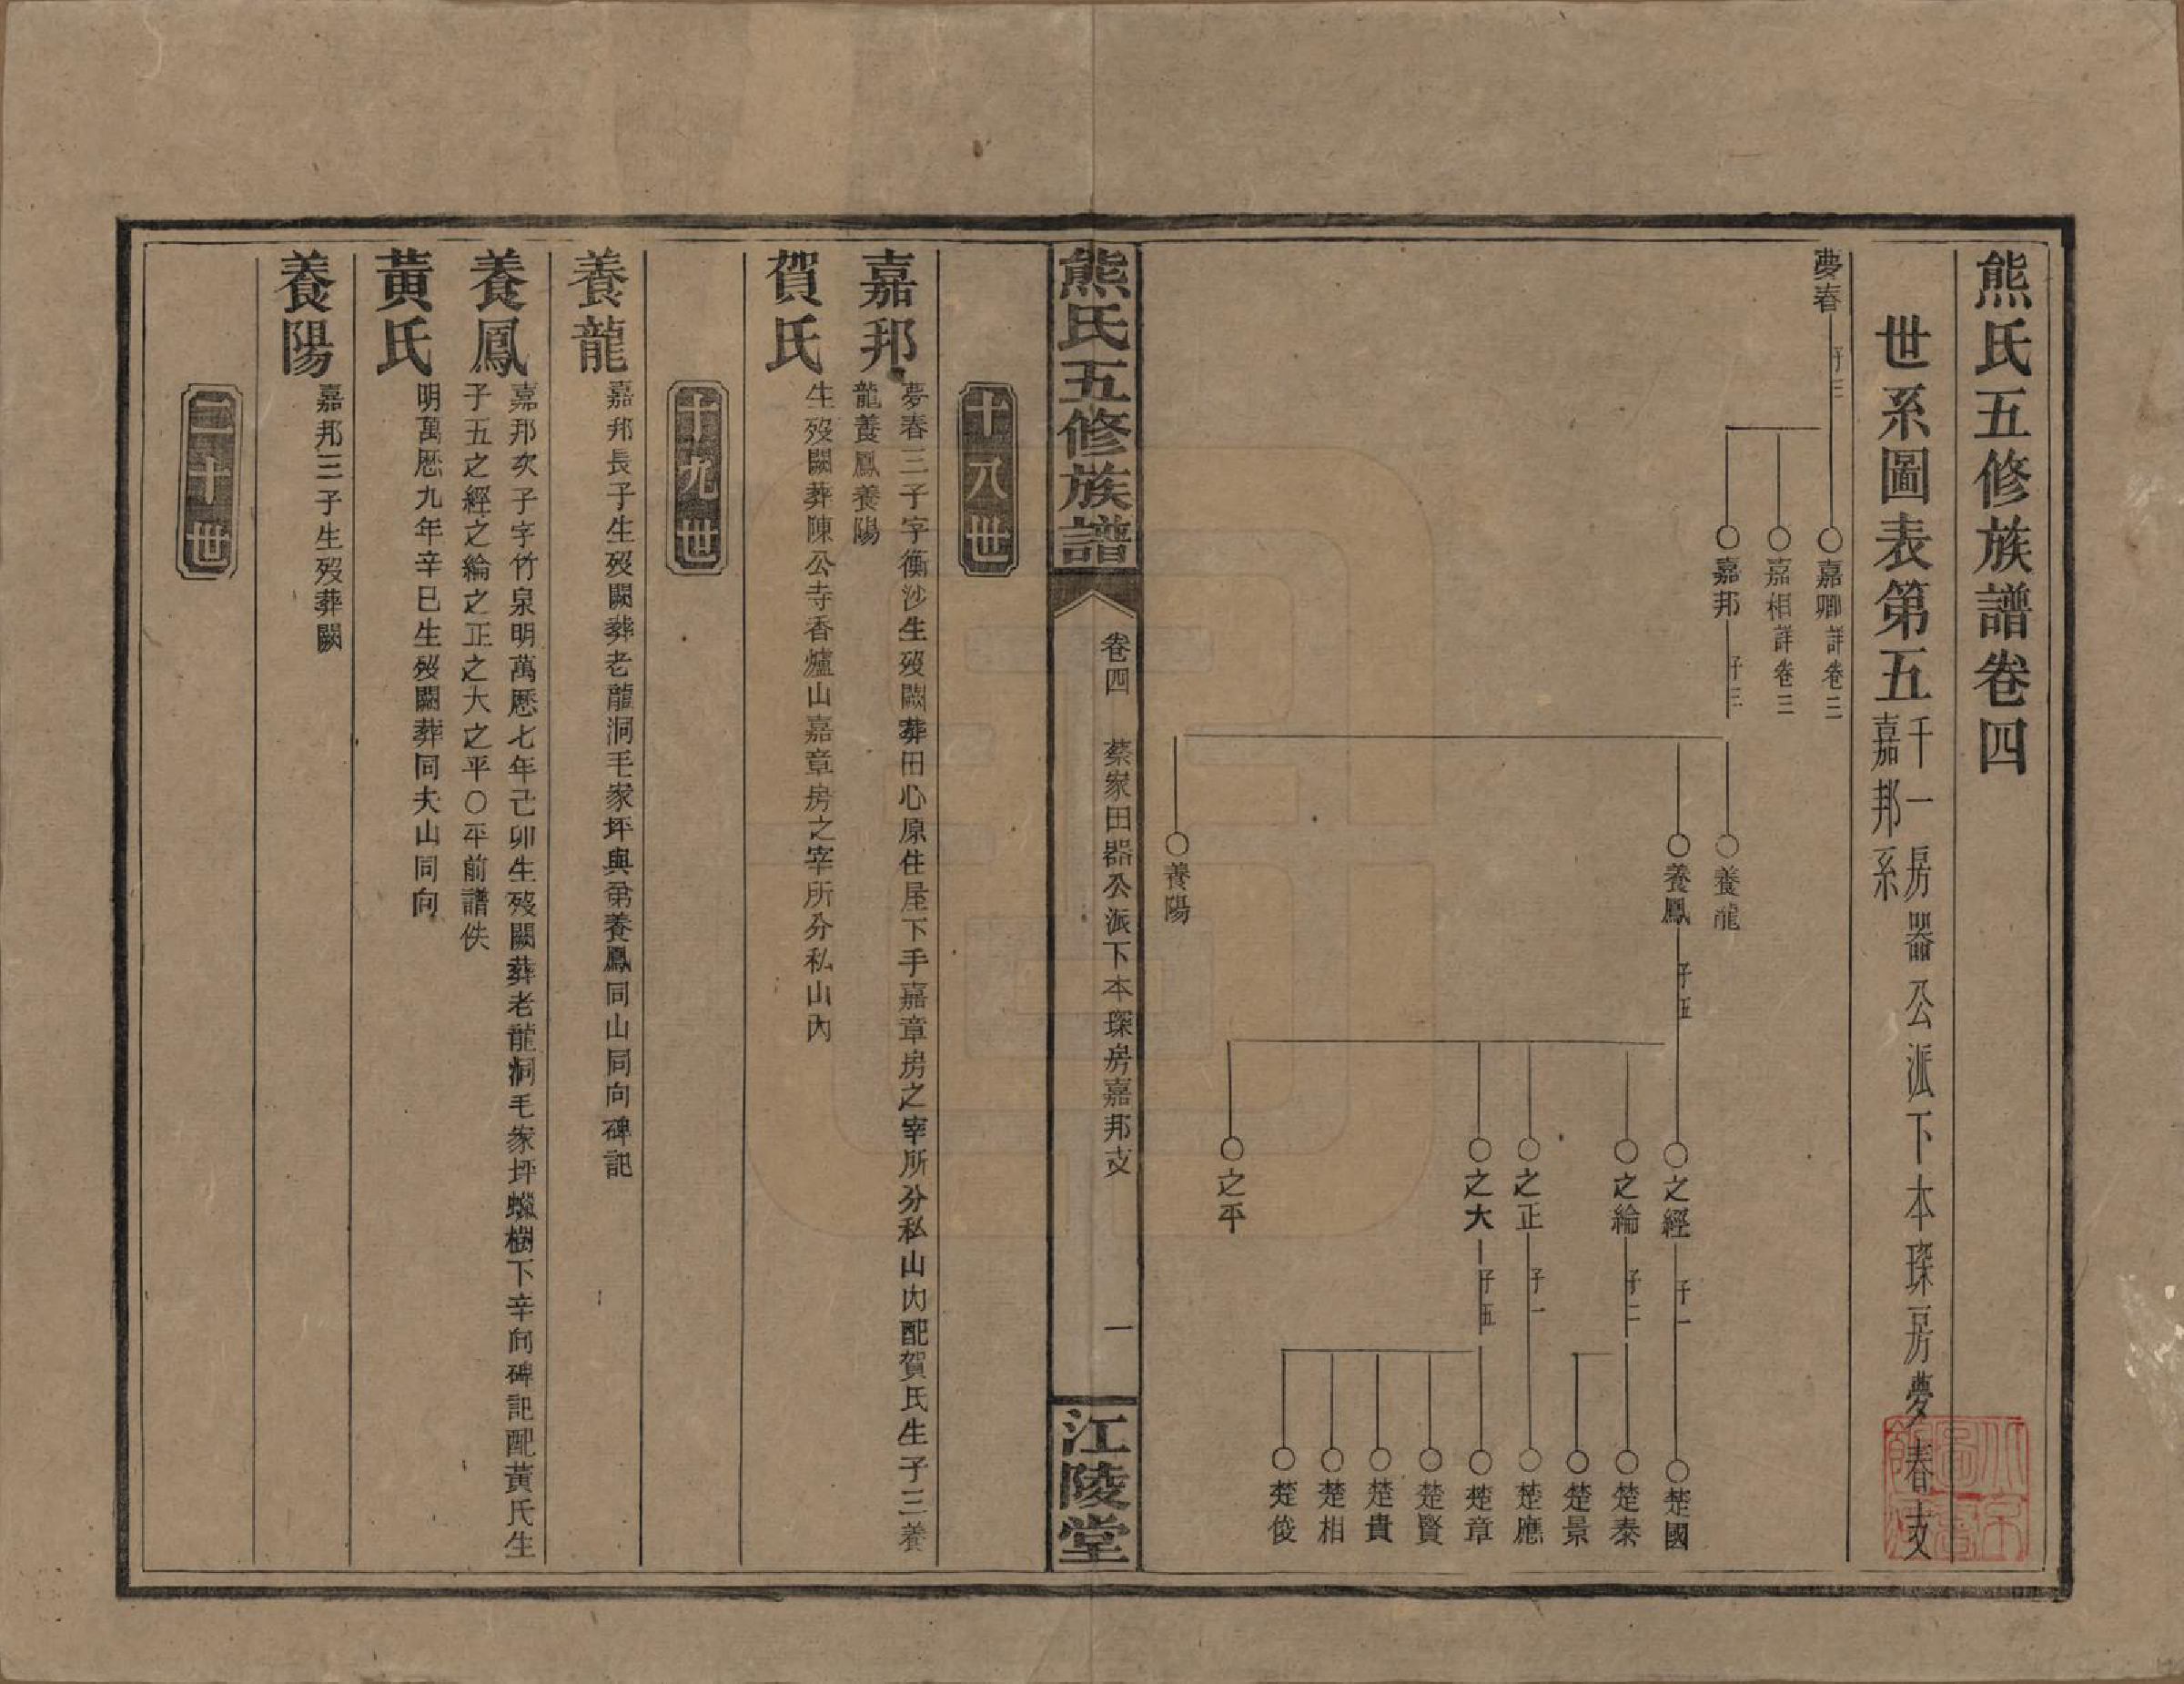 熊氏五修族譜卷四
世系圖表第五
千一房器公派下本琛房夢春支
嘉邦系
夢春
子三
嘉卿詳卷三
嘉相詳卷三
嘉邦
子三
養龍
養鳳
子五
養陽
之經
子一
之綸
子二
之正
子一
之大
子五
之平
楚國
楚泰
楚景
楚應
楚章
楚賢
楚貴
楚相
楚俊
熊氏五修族譜
卷四
蔡家田器公派下本琛房嘉邦支
一
江陵堂
十八世
嘉邦
夢春三子字衡沙生歿闕葬田心原住屋下手嘉章房之宰所分私山內配賀氏生子三養
龍養鳳養陽
賀氏
生歿闕葬陳公寺香爐山嘉章房之宰所分私山內
十九世
養龍
嘉邦長子生歿闕葬老龍洞毛家坪與弟養鳳同山同向碑記
養鳳
嘉邦次子字竹泉明萬厯七年己卯生歿闕葬老龍洞毛家坪蠟樹下辛向碑記配黃氏生
子五之經之綸之正之大之平○平前譜佚
黃氏
明萬厯九年辛巳生歿闕葬同夫山同向
養陽
嘉邦三子生歿葬闕
二十世